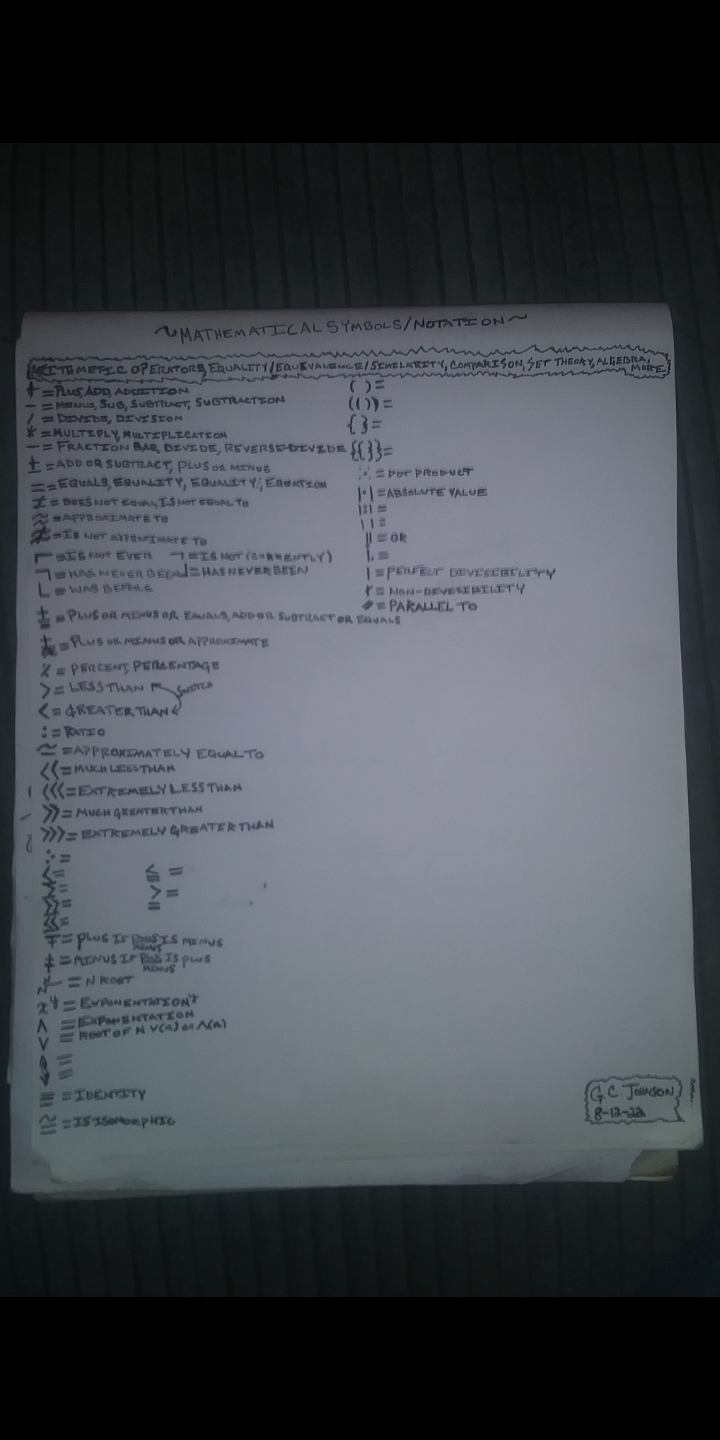 ~MATHEMATICAL SYMBOLS/NOTATION~
ARITHMETIC OPERATORS, EQUALITY/EQUEVALENCE/SIMELARITY, COMPARISON, SET THEORY, ALGEBRA, MORE
+ = PLUS, ADD, ADDITION
− = MENUS, SUB, SUBTRACT, SUBTRACTION
/ = DIVIDE, DIVISION
* = MULTIPLY, MULTIPLICATION
— = FRACTION BAR, DIVIDE, REVERSE-DIVIDE
± = ADD OR SUBTRACT, PLUS OR MINUS
= = EQUALS, EQUALITY, EQUALITY; EQUATION
≠ = DOES NOT EQUAL, IS NOT EQUAL TO
≈ = APPROXIMATE TO
≉ = IS NOT APPROXIMATE TO
⌐ = IS NOT EVER ¬ = IS NOT (CURRENTLY)
¬ = HAS NEVER BEEN ┘ = HAS NEVER BEEN
L = WAS BEFORE
= PLUS OR MINUS OR EQUALS, ADD OR SUBTRACT OR EQUALS
= PLUS OR MINUS OR APPROXIMATE
% = PERCENT, PERCENTAGE
> = LESS THAN
SWITCH
< = GREATER THAN
: = RATIO
≃ = APPROXIMATELY EQUAL TO
<< = MUCH LESS THAN
<<< = EXTREMELY LESS THAN
>> = MUCH GREATER THAN
>>> = EXTREMELY GREATER THAN
∴ =
≤ =
> =
=
∓ = PLUS IF PLUS IS MENUS
MENUS
‡ = MINUS IF IS PLUS
MENUS
√ = N ROOT
x^y = EXPONENTATION
∧ = EXPONENTATION
∨ = ROOT OF N V(n) OR Λ(n)
=
=
≡ = IDENTITY
≅ = IS ISOMORPHIC
( ) =
(( )) =
{ } =
{{ }} =
= DOT PRODUCT
|•| = ABSOLUTE VALUE
|:| =
| | =
|| = OR
|. =
| = PERFECT DEVISEBILITY
= NON-DEVESIBILITY
= PARALLEL TO
G.C. JOHNSON
8-12-22